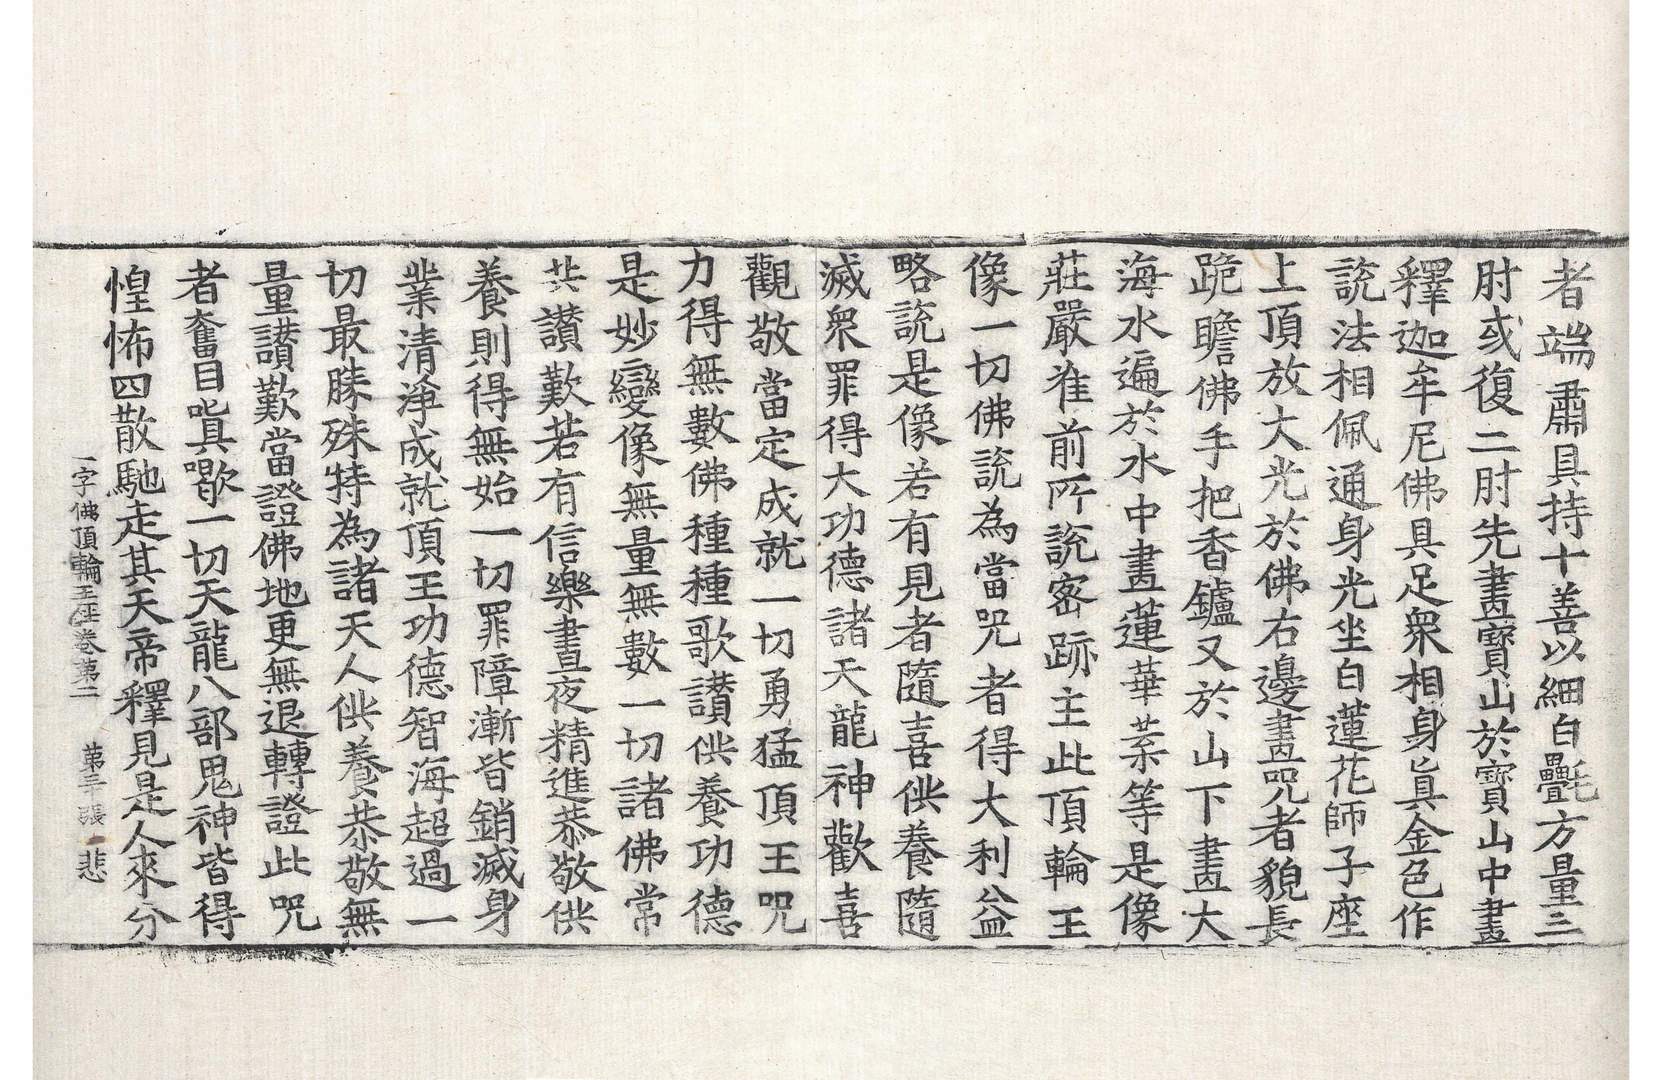 者端肅具持十善以細白㲲方量三
肘或復二肘先畫寶山於寶山中畫
釋迦牟尼佛具足衆相身眞金色作
說法相佩通身光坐白蓮花師子座
上頂放大光於佛右邊畫咒者貌長
跪瞻佛手把香鑪又於山下畫大
海水遍於水中畫蓮華葉等是像
莊嚴准前所說密跡主此頂輪王
像一切佛說為當咒者得大利益
略說是像若有見者隨喜供養隨
滅衆罪得大功德諸天龍神歡喜
觀敬當定成就一切勇猛頂王咒
力得無數佛種種歌讃供養功德
是妙變像無量無數一切諸佛常
共讃歎若有信樂晝夜精進恭敬供
養則得無始一切罪障漸皆銷滅身
業清淨成就頂王功德智海超過一
切最勝殊特為諸天人供養恭敬無
量讃歎當證佛地更無退轉證此咒
者奮目嗔喝一切天龍八部鬼神皆得
惶怖四散馳走其天帝釋見是人來分
一字佛頂輪王経卷第二 第三張 悲